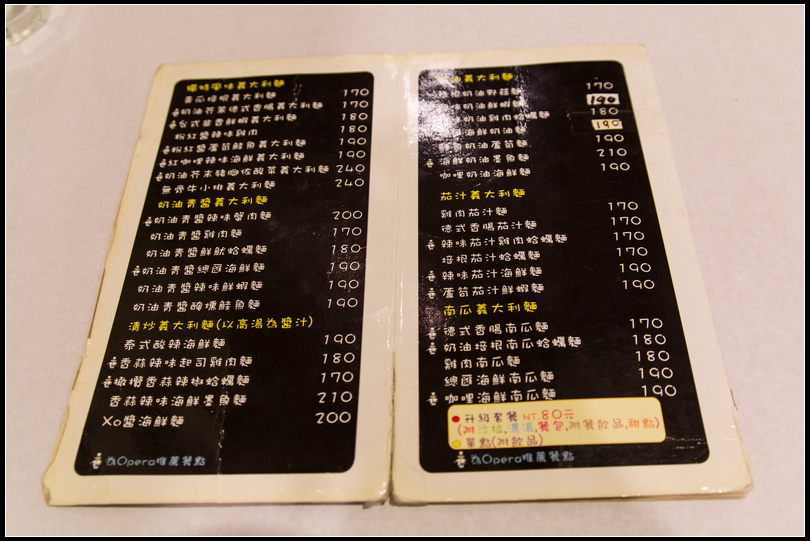 獨特風味義大利麵
黃瓜培根義大利麵 170
奶油芥茉德式香腸義大利麵 170
台式茴香鮮蝦義大利麵 180
粉紅醬辣味雞肉 180
粉紅醬蘆筍鮭魚義大利麵 190
紅咖哩辣味海鮮義大利麵 190
奶油芥末豬腳佐酸菜義大利麵 240
無骨牛小排義大利麵 240
奶油青醬義大利麵
奶油青醬辣味蟹肉 200
奶油青醬雞肉 170
奶油青醬鮮魷蛤蠣麵 180
奶油青醬總匯海鮮麵 190
奶油青醬辣味鮮蝦麵 190
奶油青醬酸燻鮭魚麵 190
清炒義大利麵(以高湯為醬汁)
泰式酸辣海鮮麵 190
香蒜辣味起司雞肉麵 180
橄欖香蒜辣椒蛤蠣麵 170
香蒜辣味海鮮墨魚麵 210
XO醬海鮮麵 200
為Opera推薦餐點
義大利麵
奶油野菇麵 170
奶油鮮蝦麵 190
奶油雞肉蛤蠣麵 180
海鮮奶油麵 190
鮭魚奶油蘆筍麵 190
海鮮奶油墨魚麵 210
咖哩奶油海鮮麵 190
茄汁義大利麵
雞肉茄汁麵 170
德式香腸茄汁麵 170
辣味茄汁雞肉蛤蠣麵 170
培根茄汁蛤蠣麵 170
辣味茄汁海鮮麵 190
蘆筍茄汁鮮蝦麵 190
南瓜義大利麵
德式香腸南瓜麵 170
奶油培根南瓜蛤蠣麵 180
雞肉南瓜麵 180
總匯海鮮南瓜麵 190
咖哩海鮮南瓜麵 190
升級套餐 NT.80元
(附沙拉,濃湯,餐包,附餐飲品,甜點)
單點(附飲品)
為Opera推薦餐點